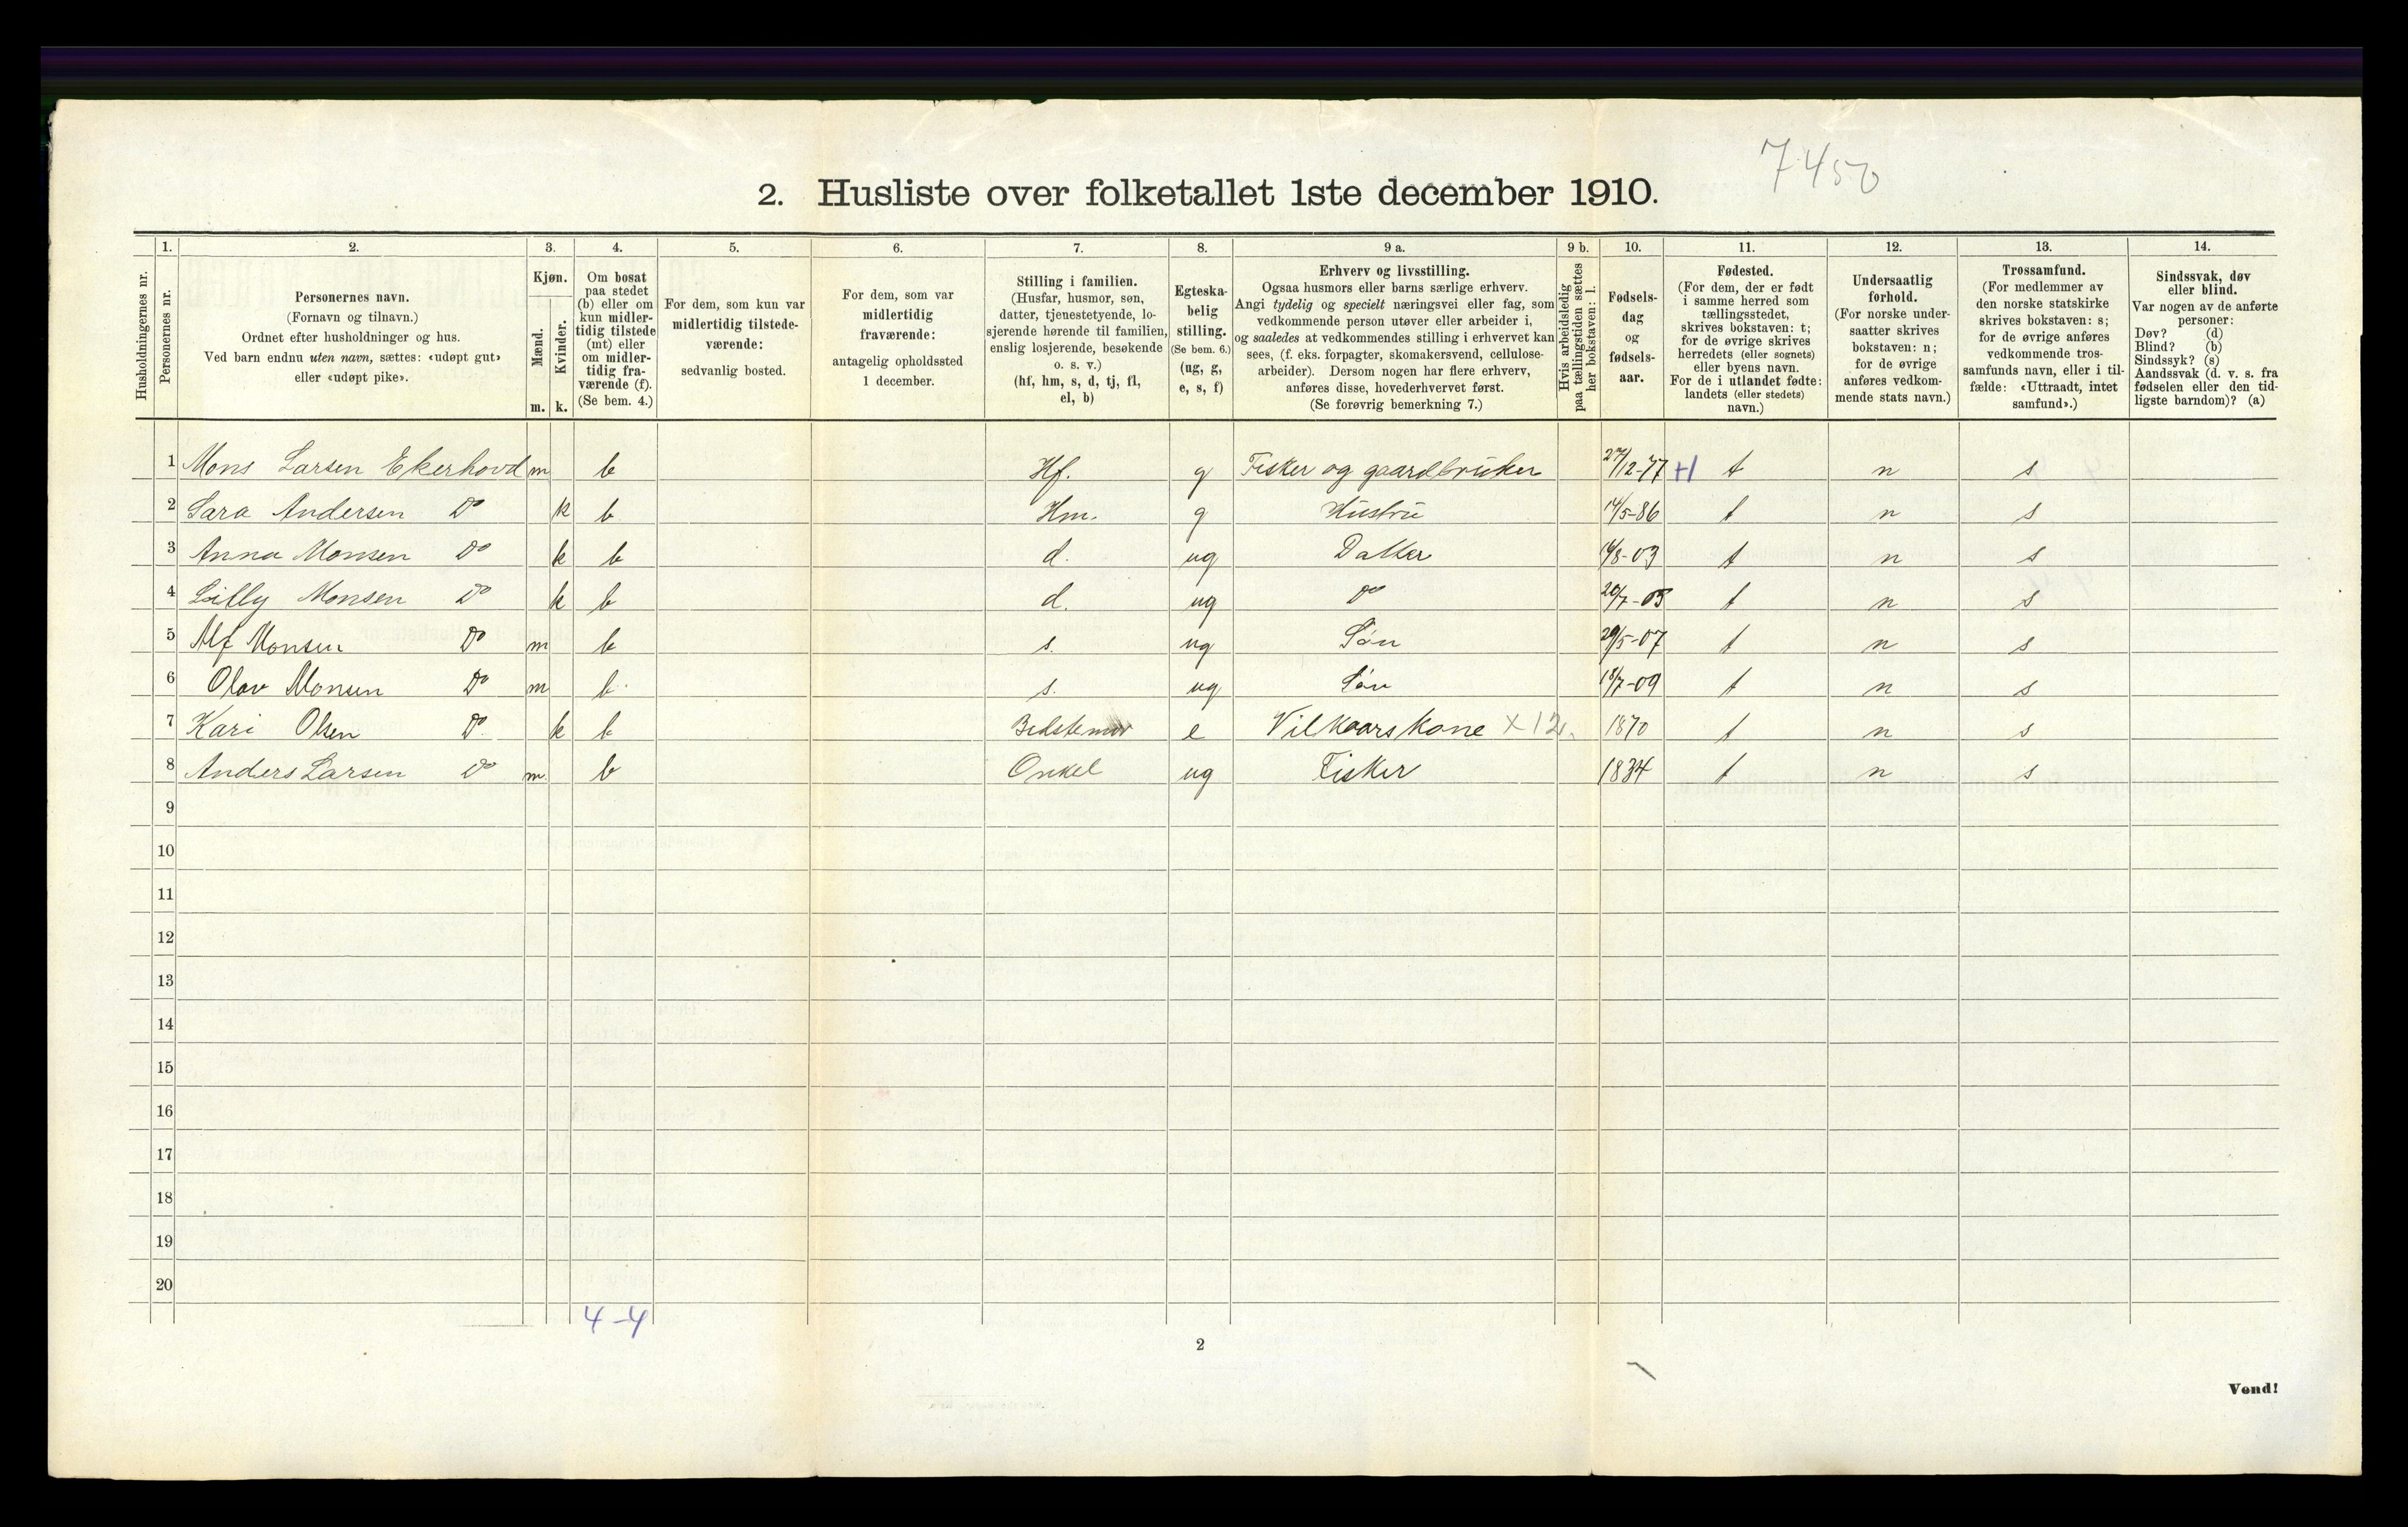 7450
2. Husliste over folketallet 1ste december 1910.
Husholdningernes nr.
1.
Personernes nr.
2.
Personernes navn.
(Fornavn og tilnavn.)
Ordnet efter husholdninger og hus.
Ved barn endnu uten navn, sættes: «udøpt gut»
eller «udøpt pike».
3.
Kjøn.
Mænd.
m.
Kvinder.
k.
4.
Om bosat
paa stedet
(b) eller om
kun midler-
tidig tilstede
(mt) eller
om midler-
tidig fra-
værende (f).
(Se bem. 4.)
5.
For dem, som kun var
midlertidig tilstede-
værende:
sedvanlig bosted.
6.
For dem, som var
midlertidig
fraværende:
antagelig opholdssted
1 december.
7.
Stilling i familien.
(Husfar, husmor, søn,
datter, tjenestetyende, lo-
sjerende hørende til familien,
enslig losjerende, besøkende
o. s. v.)
(hf, hm, s, d, tj, fl,
el, b)
8.
Egteska-
belig
stilling.
(Se bem. 6.)
(ug, g,
e, s, f)
9 a.
Erhverv og livsstilling.
Ogsaa husmors eller barns særlige erhverv.
Angi tydelig og specielt næringsvei eller fag, som
vedkommende person utøver eller arbeider i,
og saaledes at vedkommendes stilling i erhvervet kan
sees, (f. eks. forpagter, skomakersvend, cellulose-
arbeider). Dersom nogen har flere erhverv,
anføres disse, hovederhvervet først.
(Se forøvrig bemerkning 7.)
9 b.
Hvis arbeidsledig
paa tællingstiden sættes
her bokstaven: l.
10.
Fødsels-
dag
og
fødsels-
aar.
11.
Fødested.
(For dem, der er født
i samme herred som
tællingsstedet,
skrives bokstaven: t;
for de øvrige skrives
herredets (eller sognets)
eller byens navn.
For de i utlandet fødte:
landets (eller stedets)
navn.)
12.
Undersaatlig
forhold.
(For norske under-
saatter skrives
bokstaven: n;
for de øvrige
anføres vedkom-
mende stats navn.)
13.
Trossamfund.
(For medlemmer av
den norske statskirke
skrives bokstaven: s;
for de øvrige anføres
vedkommende tros-
samfunds navn, eller i til-
fælde: «Uttraadt, intet
samfund».)
14.
Sindssvak, døv
eller blind.
Var nogen av de anførte
personer:
Døv? (d)
Blind? (b)
Sindssyk? (s)
Aandssvak (d. v. s. fra
fødselen eller den tid-
ligste barndom)? (a)
1 Mons Larsen Ekerhovd m b Hf. g Fisker og gaardbruker 27/12-77 +1 t n s
2 Sara Andersen Do k b Hm. g Hustru 14/5-86 t n s
3 Anna Monsen Do k b d. ug Datter t n s
4 Lilly Monsen Do k b d. ug Do 20/7-05 t n s
5 Alf Monsen Do m b s. ug Søn 29/5-07 t n s
6 Olav Monsen Do m b s. ug Søn 18/7-09 t n s
7 Kari Olsen Do k b Bedstemor e Vilkaarskone x12. 1870 t n s
8 Anders Larsen Do m b Onkel ug Fisker 1834 t n s
9
10
11
12
13
14
15
16
17
18
19
20
4-4
2
Vend!